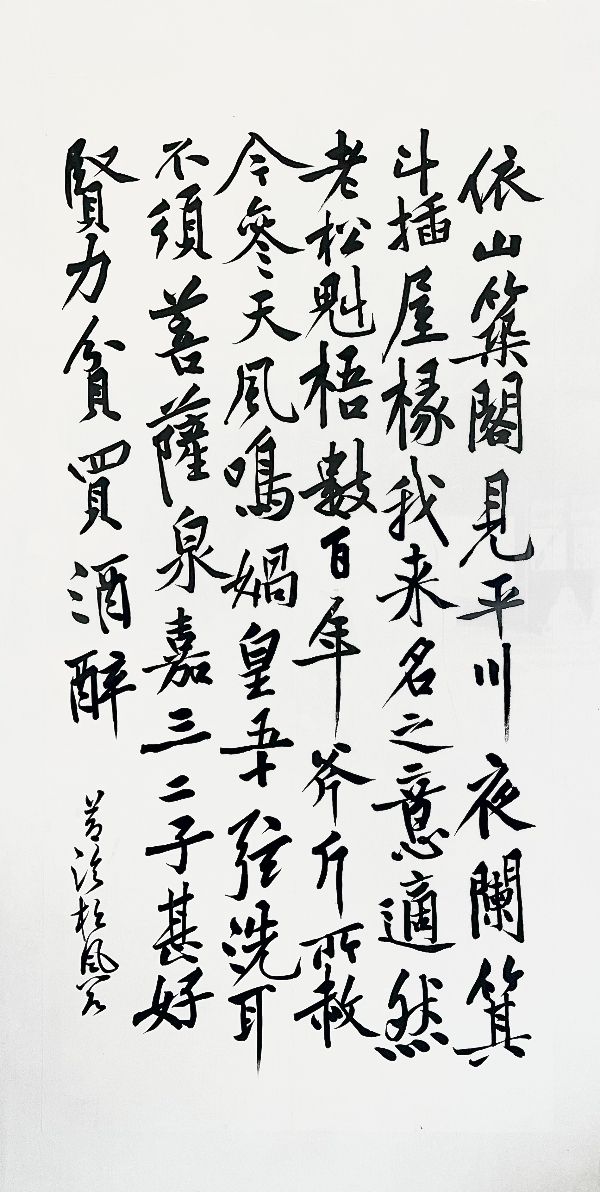 依山築閣見平川夜闌箕
斗插屋椽我来名之意適然
老松魁梧數百年斧斤所赦
今參天風鳴媧皇五十弦洗耳
不須菩薩泉嘉三二子甚好
賢力貧買酒醉
黃
松風閣